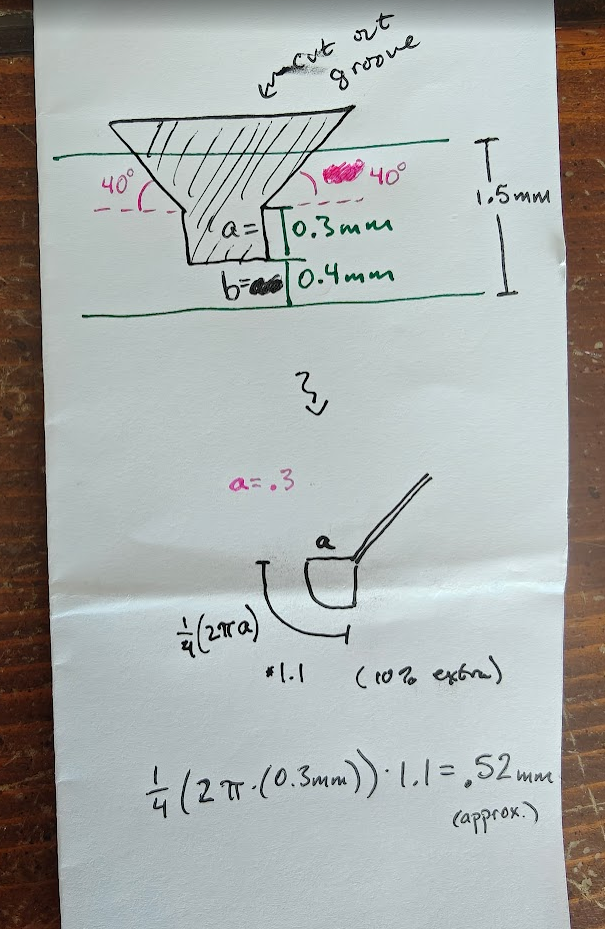 cut out
groove
40°
40°
1.5mm
a=
0.3mm
b=
0.4mm
a=.3
a
1/4(2πa)
*1.1 (10% extra)
1/4(2π·(0.3mm))·1.1=.52mm
(approx.)